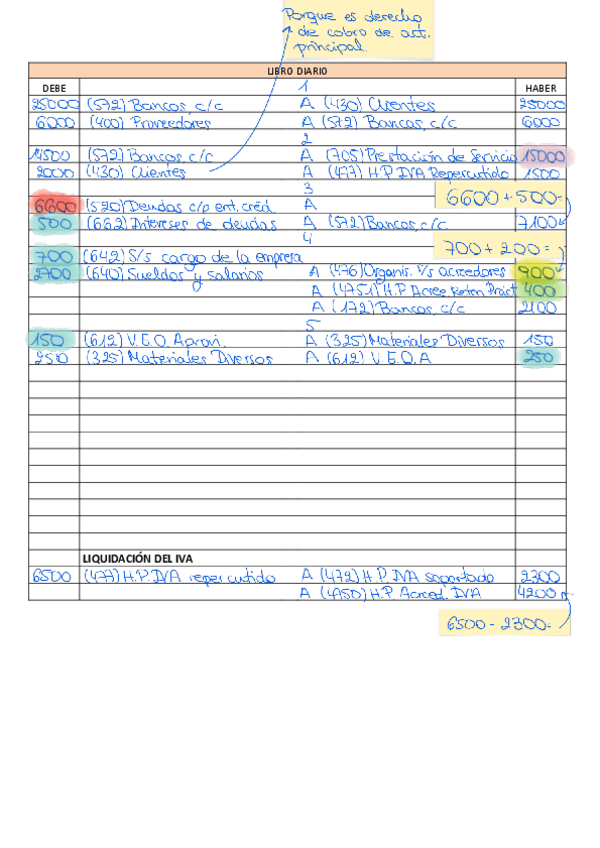 Porque es derecho
de cobro de act.
principal.
LIBRO DIARIO
DEBE HABER
1
25000 (572) Bancos, c/c A (430) Clientes 25000
6000 (400) Proveedores A (572) Bancos, c/c 6000
2
14500 (572) Bancos, c/c A (705) Prestación de Servicio 15000
2000 (430) Clientes A (477) H.P. IVA Repercutido 1500
3
6600 + 500=
6600 (520) Deudas c/p ent. créd. A
500 (662) Intereses de deudas A (572) Bancos, c/c 7100
4
700 + 200=
700 (642) S/s cargo de la empresa
2700 (640) Sueldos y salarios A (476) Organis. S/s acreedores 900
A (4751) H.P Acree. Reten Pract 400
A (172) Bancos, c/c 2100
5
150 (612) V.E.O. Aprovi. A (325) Materiales Diversos 150
250 (325) Materiales Diversos A (612) V.E.O.A 250
LIQUIDACIÓN DEL IVA
6500 (477) H.P. IVA repercutido A (472) H.P. IVA soportado 2300
A (4750) H.P. Acreed. IVA 4200
6500 - 2300=